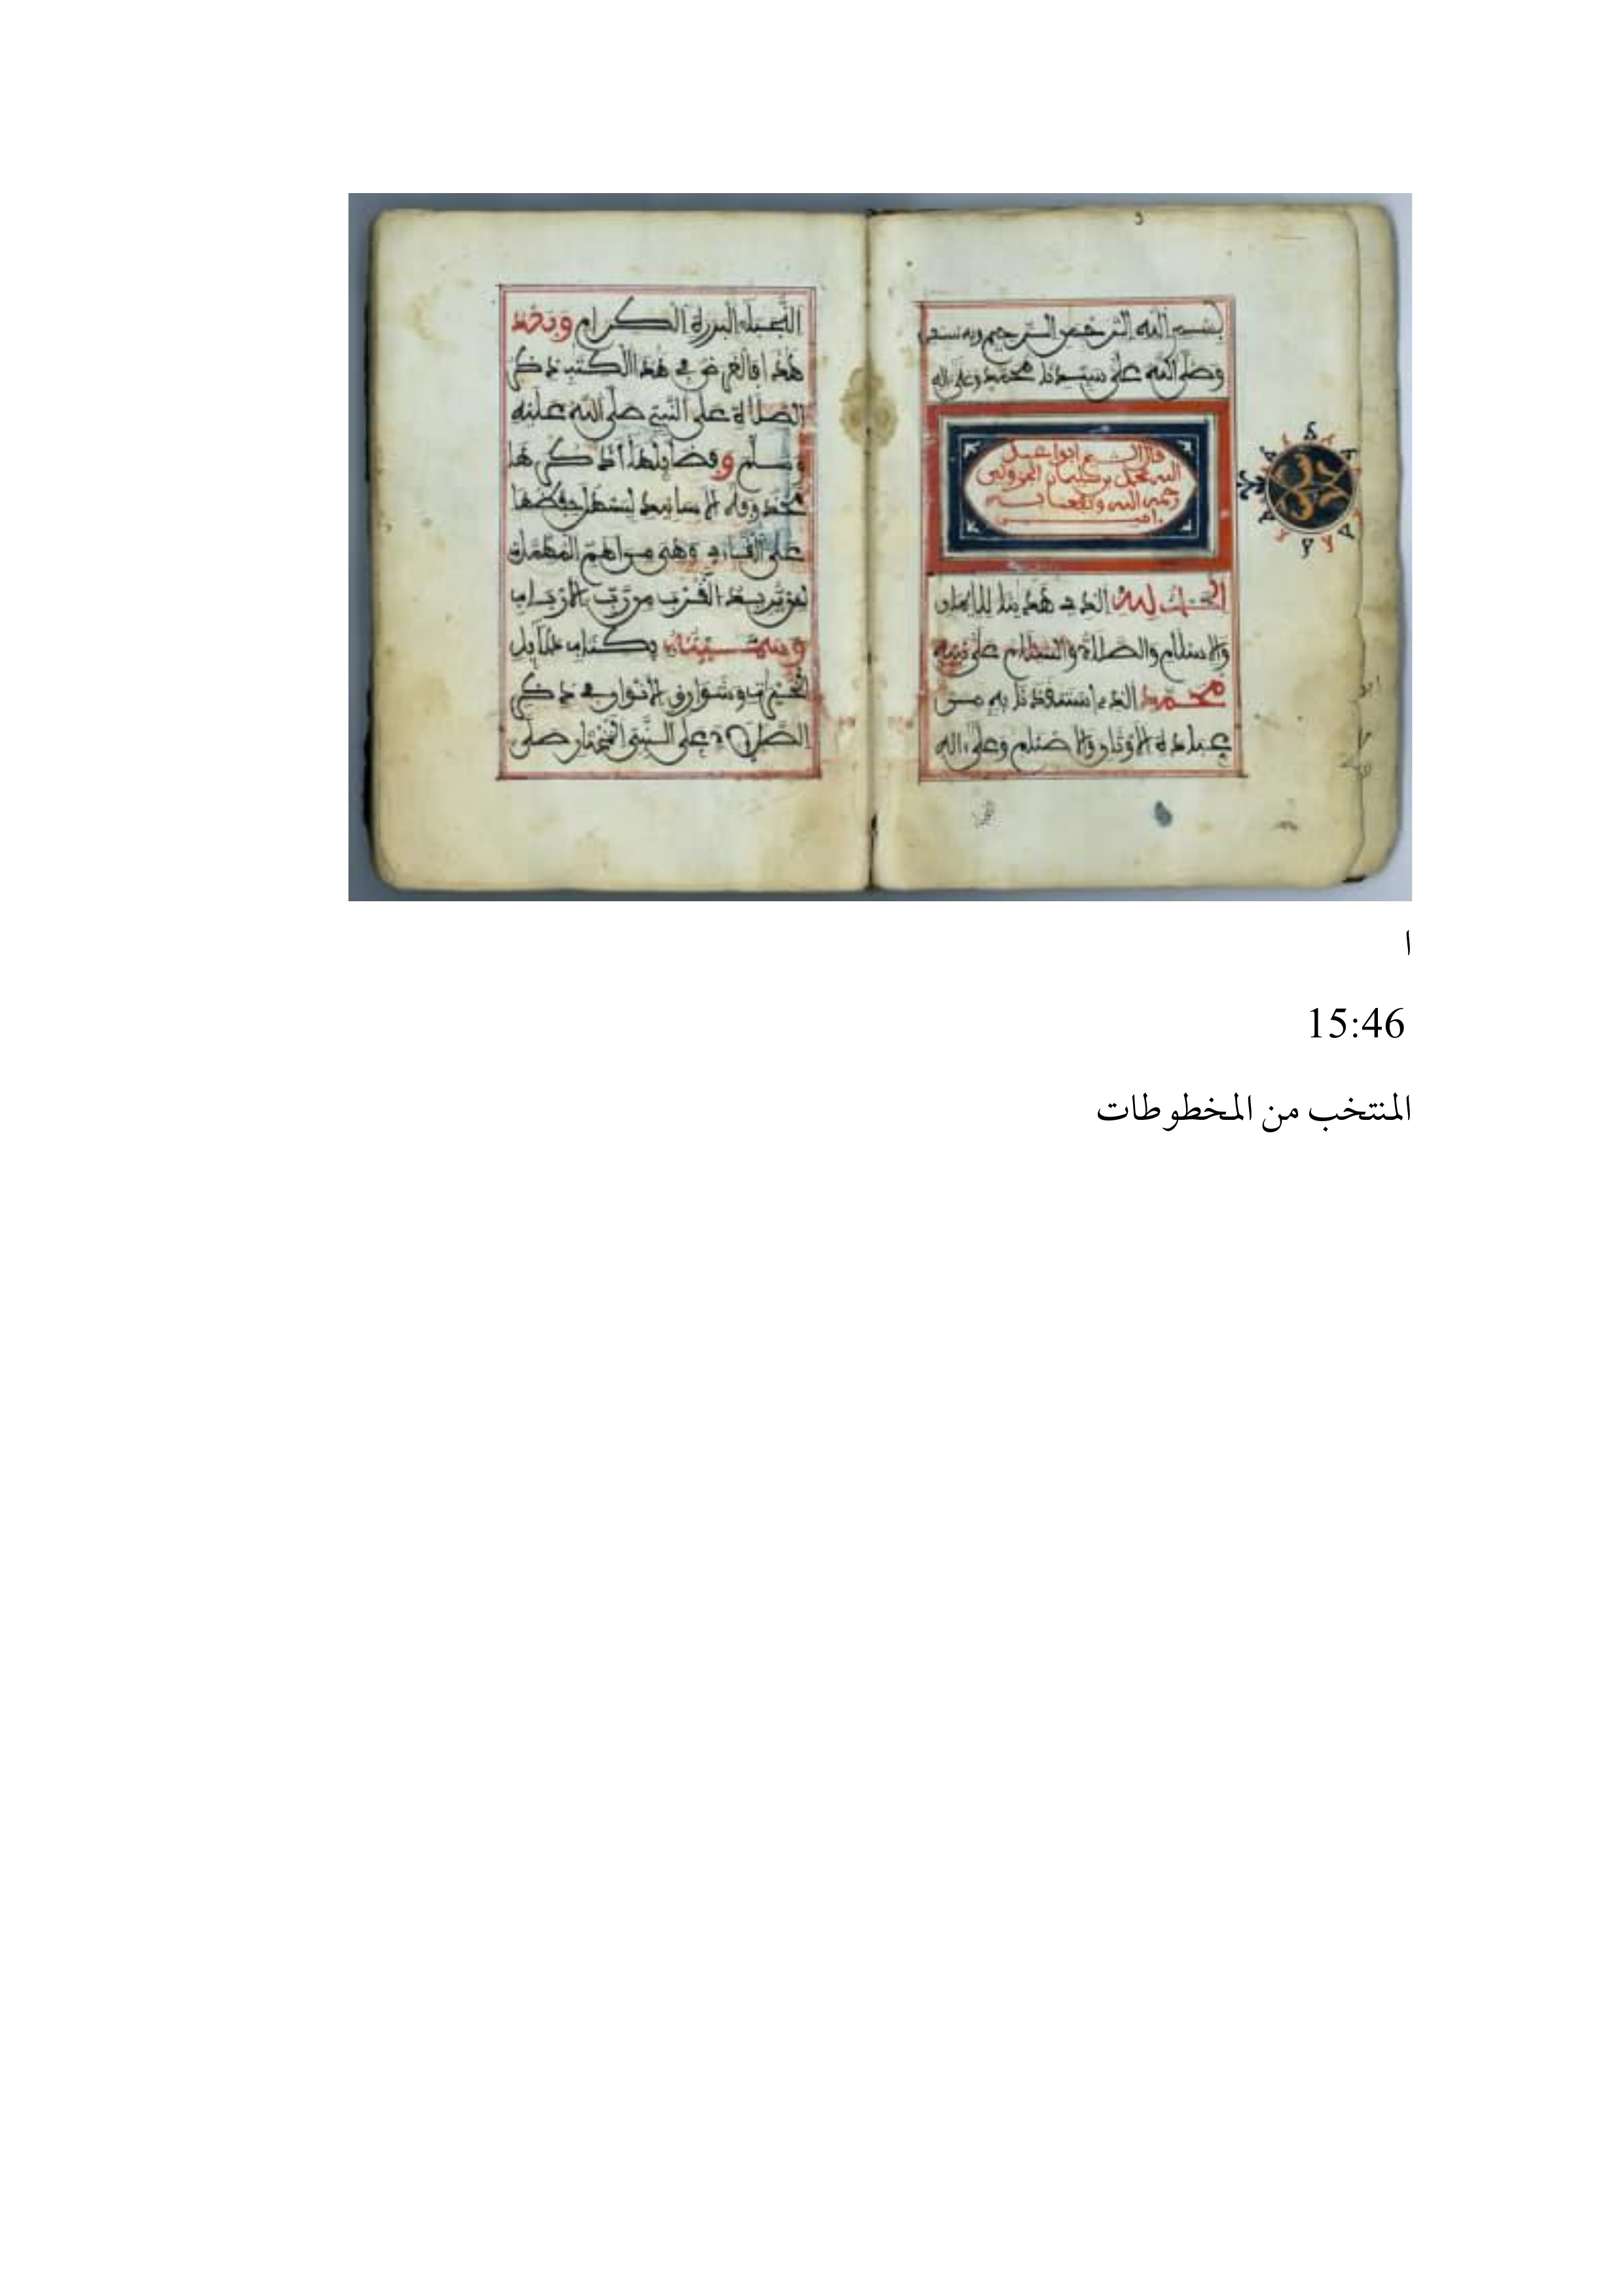 بسم الله الرحمن الرحيم وبه نستعين
وصلى الله على سيدنا محمد وعلى ءاله
قال الشيخ ابو عبد
الله محمد بن سليمان الجزولي
رحمه الله ونفعنا به
ءامين
الحمد لله الذي هدينا للايمان
والاسلام والصلاة والسلام على نبيه
محمد الذي استنقذنا به من
عبادة الاوثان والاصنام وعلى ءاله
النجباء البررة الكرام وبعد
هذا فالغرض في هذا الكتب ذكر
الصلاة على النبي صلى الله عليه
وسلم وفضايلها اذكرها
محذوفة الاسانيد ليسهل حفظها
على القارئ وهي من اهم المهمات
لمن يريد القرب من رب الارباب
وسميته بكتاب دلايل
الخيرات وشوارق الانوار في ذكر
الصلاة على النبي المختار صلى
ا
15:46
المنتخب من المخطوطات